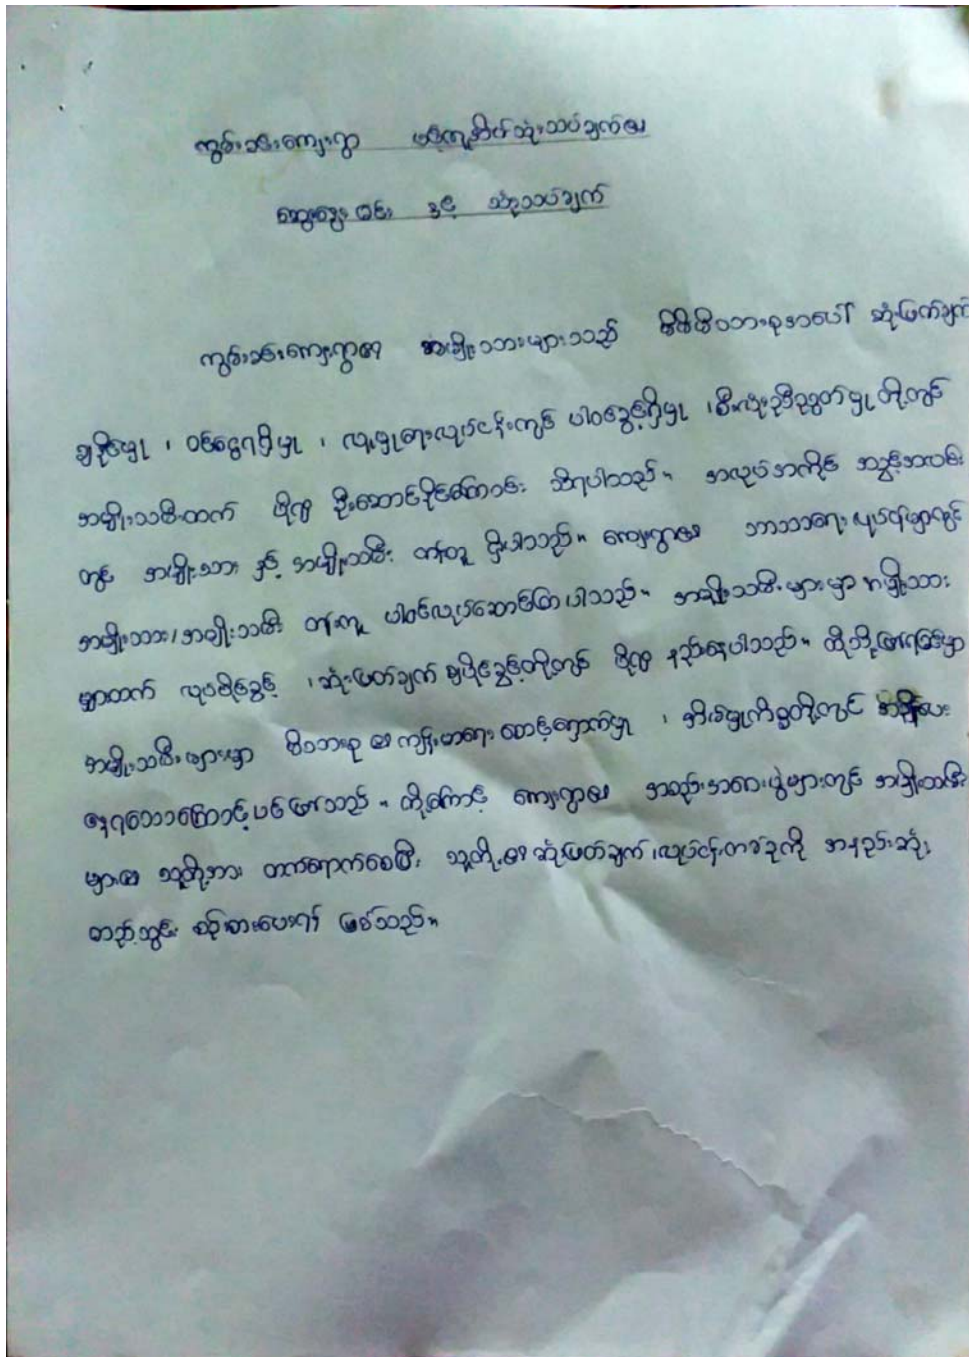 ကွမ်းခြံကျေးရွာ ဆုံးသပ်ချက်၏
ဆွေးနွေးခြင်း နှင့် သုံးသပ်ချက်
ကျေးရွာ၏ အမျိုးသားများသည် မိမိမိသားစုအပေါ် ဆုံးဖြတ်ချက်
ချနိုင်မှု ၊ ဝင်ငွေရရှိမှု ၊ လူမှုရေးလုပ်ငန်းတွင် ပါဝင်ခွင့်ရှိမှု ၊ စီးပွားဥစ္စာပိုင်ဆိုင်မှု တို့တွင်
အမျိုးသမီးထက် ပို၍ ဦးဆောင်နိုင်ကြောင်း သိရပါသည်။ အလုပ်အကိုင် အခွင့်အလမ်း
တွင် အမျိုးသား နှင့် အမျိုးသမီး တန်းတူ ရှိပါသည်။ ကျေးရွာ၏ ဘာသာရေး လုပ်ငန်းများတွင်
အမျိုးသား/အမျိုးသမီး တန်းတူ ပါဝင်လုပ်ဆောင်ကြပါသည်။ အမျိုးသမီးများမှာ အမျိုးသား
များထက် လုပ်ပိုင်ခွင့် ၊ ဆုံးဖြတ်ချက် ချပိုင်ခွင့်တို့တွင် ပို၍ နည်းနေပါသည်။ ထိုသို့ဖြစ်ရခြင်းမှာ
အမျိုးသမီးများမှာ မိသားစု ၏ ကျန်းမာရေး စောင့်ရှောက်မှု ၊ အိမ်မှုကိစ္စတို့တွင် အချိန်ပေး
နေရသောကြောင့်ပင်ဖြစ်သည်။ ထို့ကြောင့် ကျေးရွာ၏ အစည်းအဝေးပွဲများတွင် အမျိုးသမီး
များ၏ သူတို့အား တက်ရောက်စေပြီး သူတို့၏ ဆုံးဖြတ်ချက် ၊ လုပ်ငန်းတစ်ခုကို အနည်းဆုံး
ထည့်သွင်း စဉ်းစားပေးရန် ဖြစ်သည်။